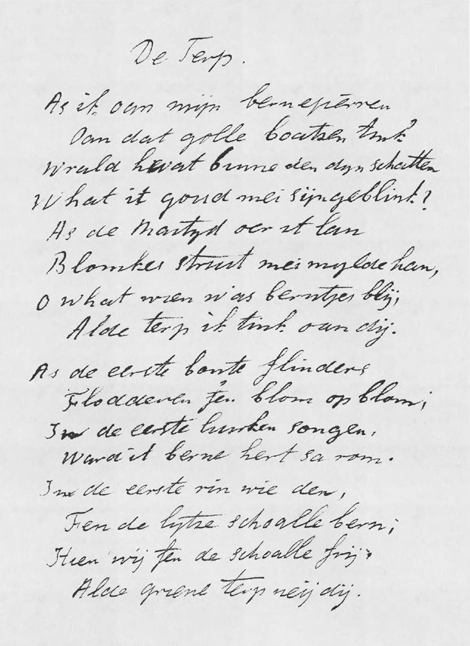 De Terp.
As ik oan mijn bernejierren
Oan dat golle boatsen tink?
Wrald hwat binne den dyn schatten
What it goud mei sijn geblink?
As de Martyd oer it lan
Blomkes struit mei mylde han,
O what wien w'as berntjes blij,
Alde terp ik tink oan dij.
As de eerste bonte flinders
Flodderen fen blom op blom;
In de eerste lurken songen,
Ward it berne hert sa rom.
In de eerste rin wie den,
Fen de lytse schoalle bern;
Hien wij fen de schoalle frij,
Alde griene terp neij dij.